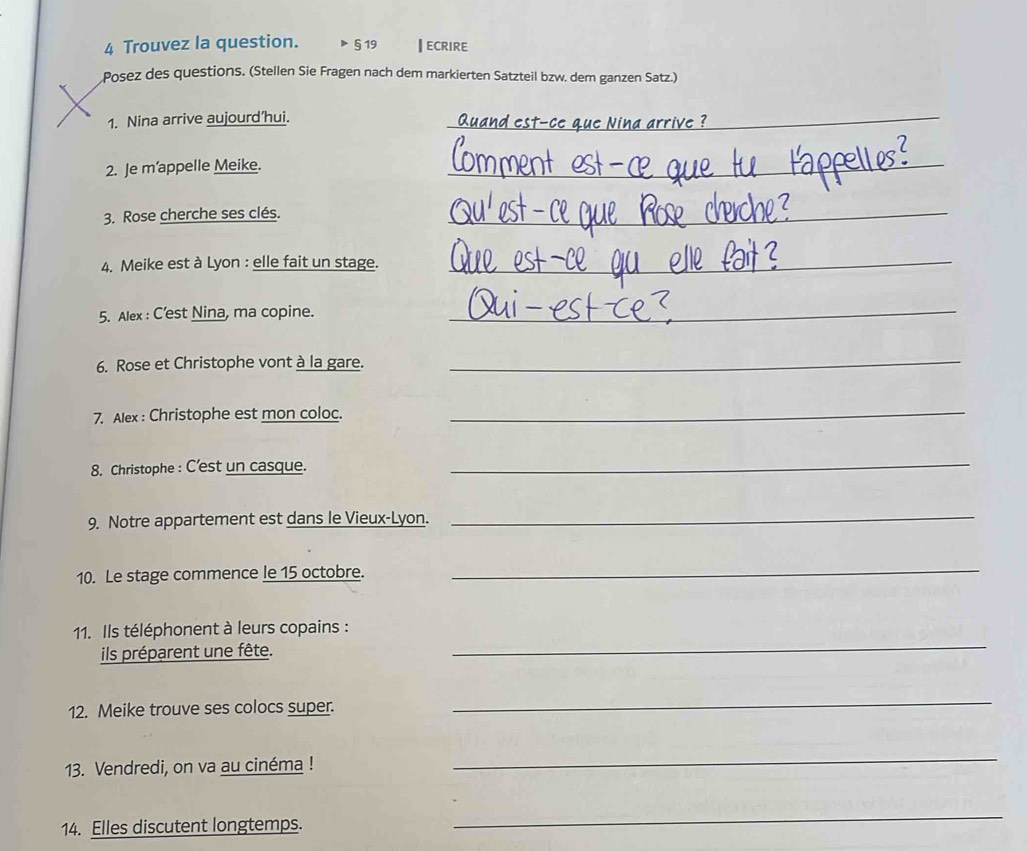 4 Trouvez la question. ▶ § 19 | ECRIRE
Posez des questions. (Stellen Sie Fragen nach dem markierten Satzteil bzw. dem ganzen Satz.)
1. Nina arrive aujourd'hui. Quand est-ce que Nina arrive ?
2. Je m'appelle Meike. Comment est-ce que tu t'appelles?
3. Rose cherche ses clés. Qu'est-ce que Rose cherche?
4. Meike est à Lyon : elle fait un stage. Que est-ce qu elle fait?
5. Alex : C'est Nina, ma copine. Qui-est-ce?
6. Rose et Christophe vont à la gare.
7. Alex : Christophe est mon coloc.
8. Christophe : C'est un casque.
9. Notre appartement est dans le Vieux-Lyon.
10. Le stage commence le 15 octobre.
11. Ils téléphonent à leurs copains :
ils préparent une fête.
12. Meike trouve ses colocs super.
13. Vendredi, on va au cinéma !
14. Elles discutent longtemps.